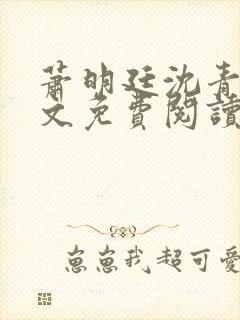 蕭明廷沈青
文免費閱讀
崽崽我超可愛